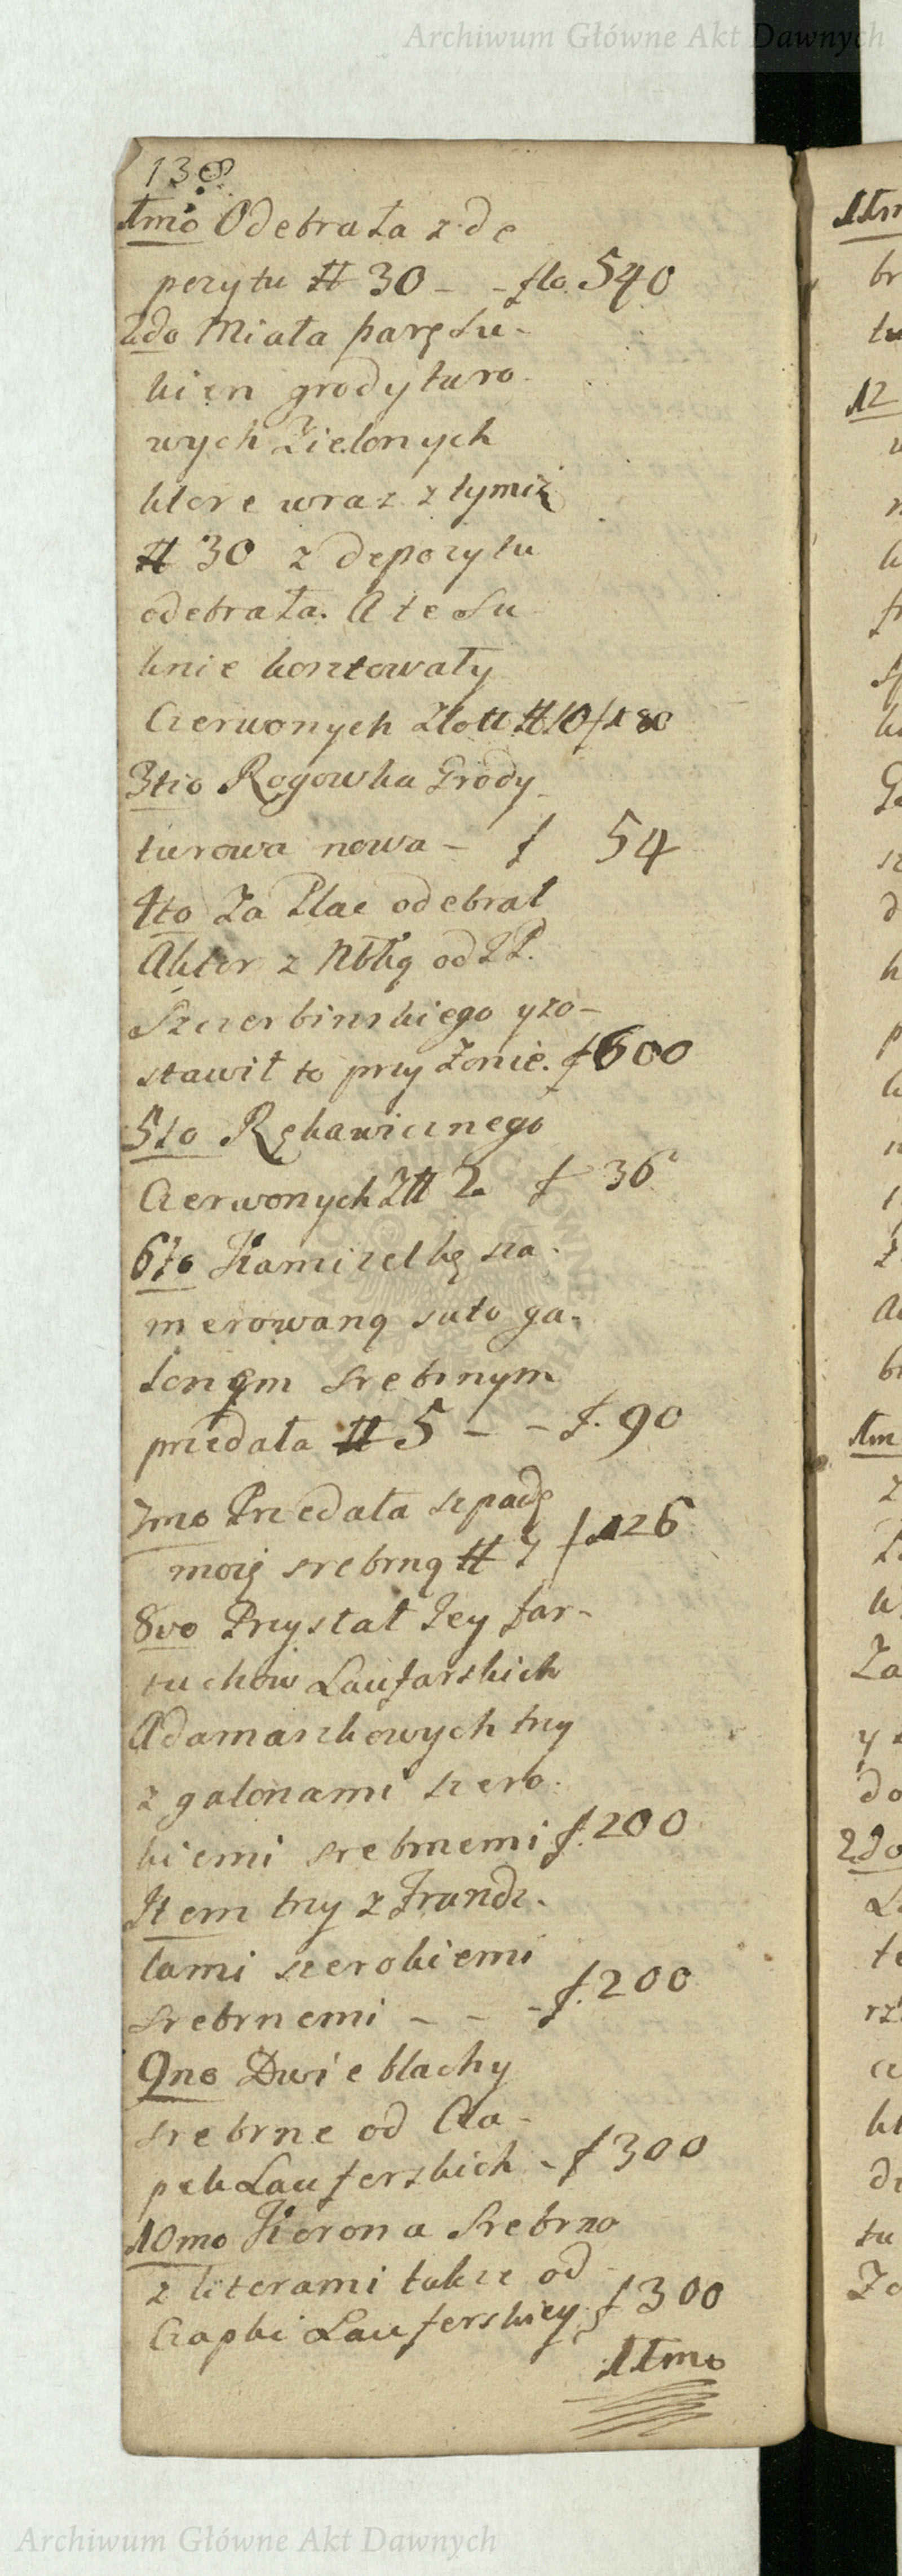 Archiwum Główne Akt Dawnych
138.
1mo Odebrała z de
pozytu # 30 - - flo. 540
2do Miała parę Su-
kien grodyturo
wych Zielonych
ktore wraz z tymiż
# 30 z depozytu
odebrała. A te Su
knie kosztowały
Czerwonych Złott # 10 f 180
3tio Rogowka Grody
turowa nowa - f 54
4to Za Plac odebrał
Aktor z Nbłką od I P.
Szczerbinskiego y zo-
stawił to przy Zonie. f 600
5to Rękawicznego
Czerwonych Z# 2. f 36
6to Kamizelkę sza-
merowaną suto ga-
lonem srebrnym
przedała # 5 - - f. 90
7mo Przedała szpadę
moię srebrną # 7 f 126
8vo Przystał Jey far-
tuchow Laufarskich
Adamaszkowych trzy
z galonami szero-
kiemi srebrnemi f. 200
Item trzy z Frandz-
lami szerokiemi
srebrnemi - - - f. 200
9no Dwie blachy
srebrne od Cza-
pek Lauferskich - f 300
10mo Korona Srebrna
z literami także od
Czapki Lauferskiey. f 300
11mo
11m
br
tu
12
k
fr
Za
do
2do
te
rz
tu
Archiwum Główne Akt Dawnych